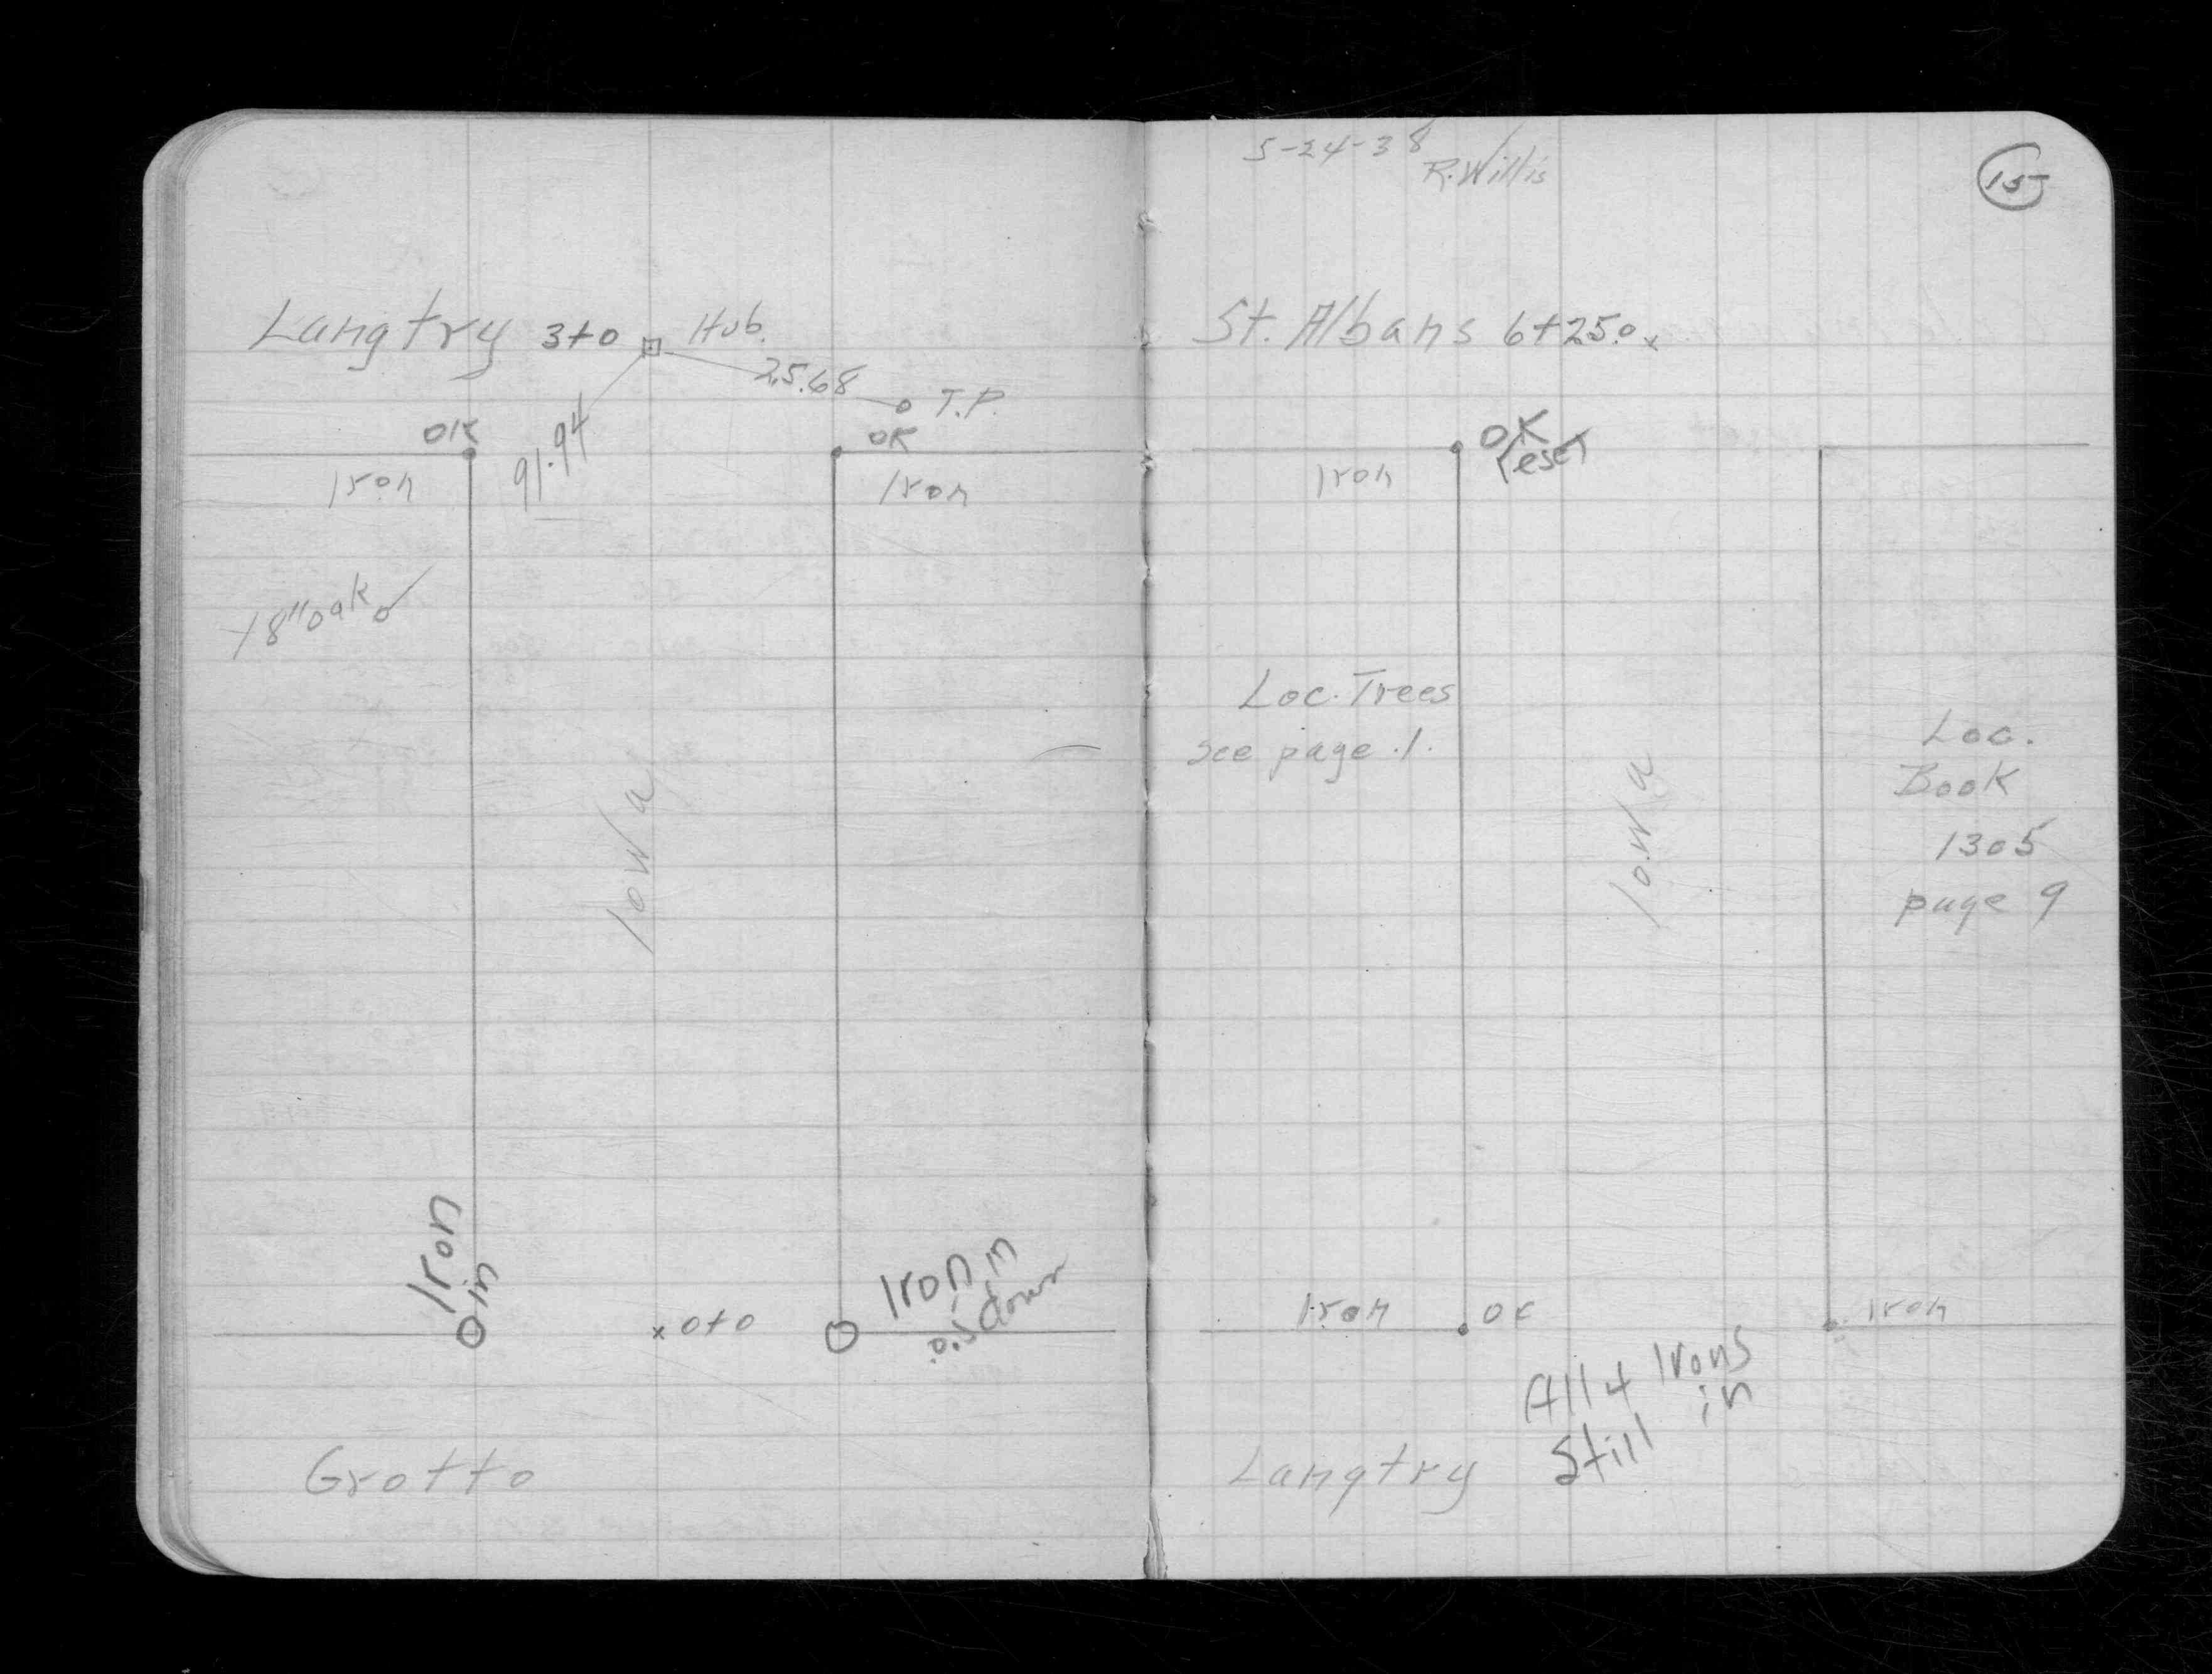 Langtry 3+0 Hub.
25.68
T.P.
OK
91.94
OK
Iron
Iron
18" oak
Iowa
Iron
in
0+0
Iron in
0.5 down
Grotto
5-24-38
R. Willis
15
St. Albans 6+25.0 x
OK
reset
Iron
Loc. Trees
see page .1.
Iowa
Loc.
Book
1305
page 9
Iron
OK
Iron
All 4 Irons
Still in
Langtry